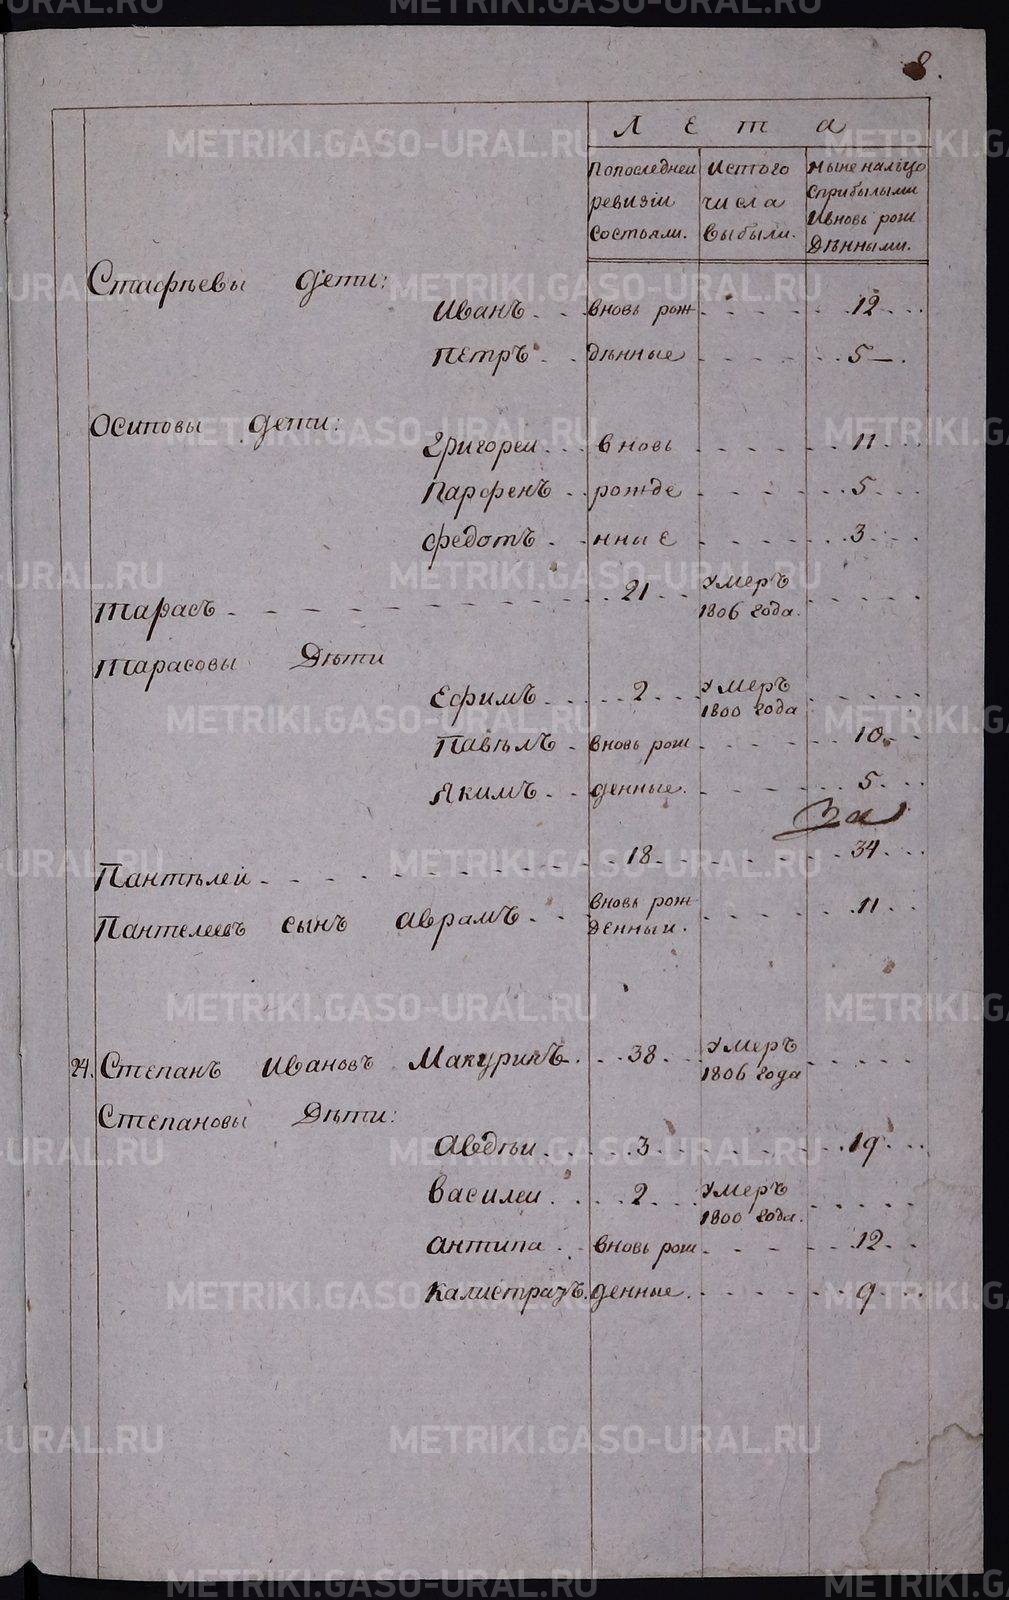 8.
Лета
Попоследнеи
ревизіи
состояли.
Исптого
числа
выбыли.
Ныне налицо
сприбылыми
ивновь рож
дѣнными.
Стафѣевы дети:
Иванъ вновь рож 12
Пётръ дѣнные 5
Осиповы дети:
Григореи вновь 11
Парфенъ рожде 5
Федотъ нные 3
Тарасъ 21 умеръ
1806 года.
Тарасовы Дѣти
Ефимъ 2 умеръ
1800 года
Павѣлъ вновь рож 10
Якимъ денные. 5
За
Пантѣлей 18 34
Пантелеевъ сынъ Аврамъ вновь рож 11
денныи.
24. Степанъ Ивановъ Макуринъ 38 умеръ
1806 года
Степановы Дѣти:
Авдѣи 3 19
Василеи 2 умеръ
1800 года.
Антипа вновь рож 12
Калистратъ денные. 9
METRIKI.GASO-URAL.RU